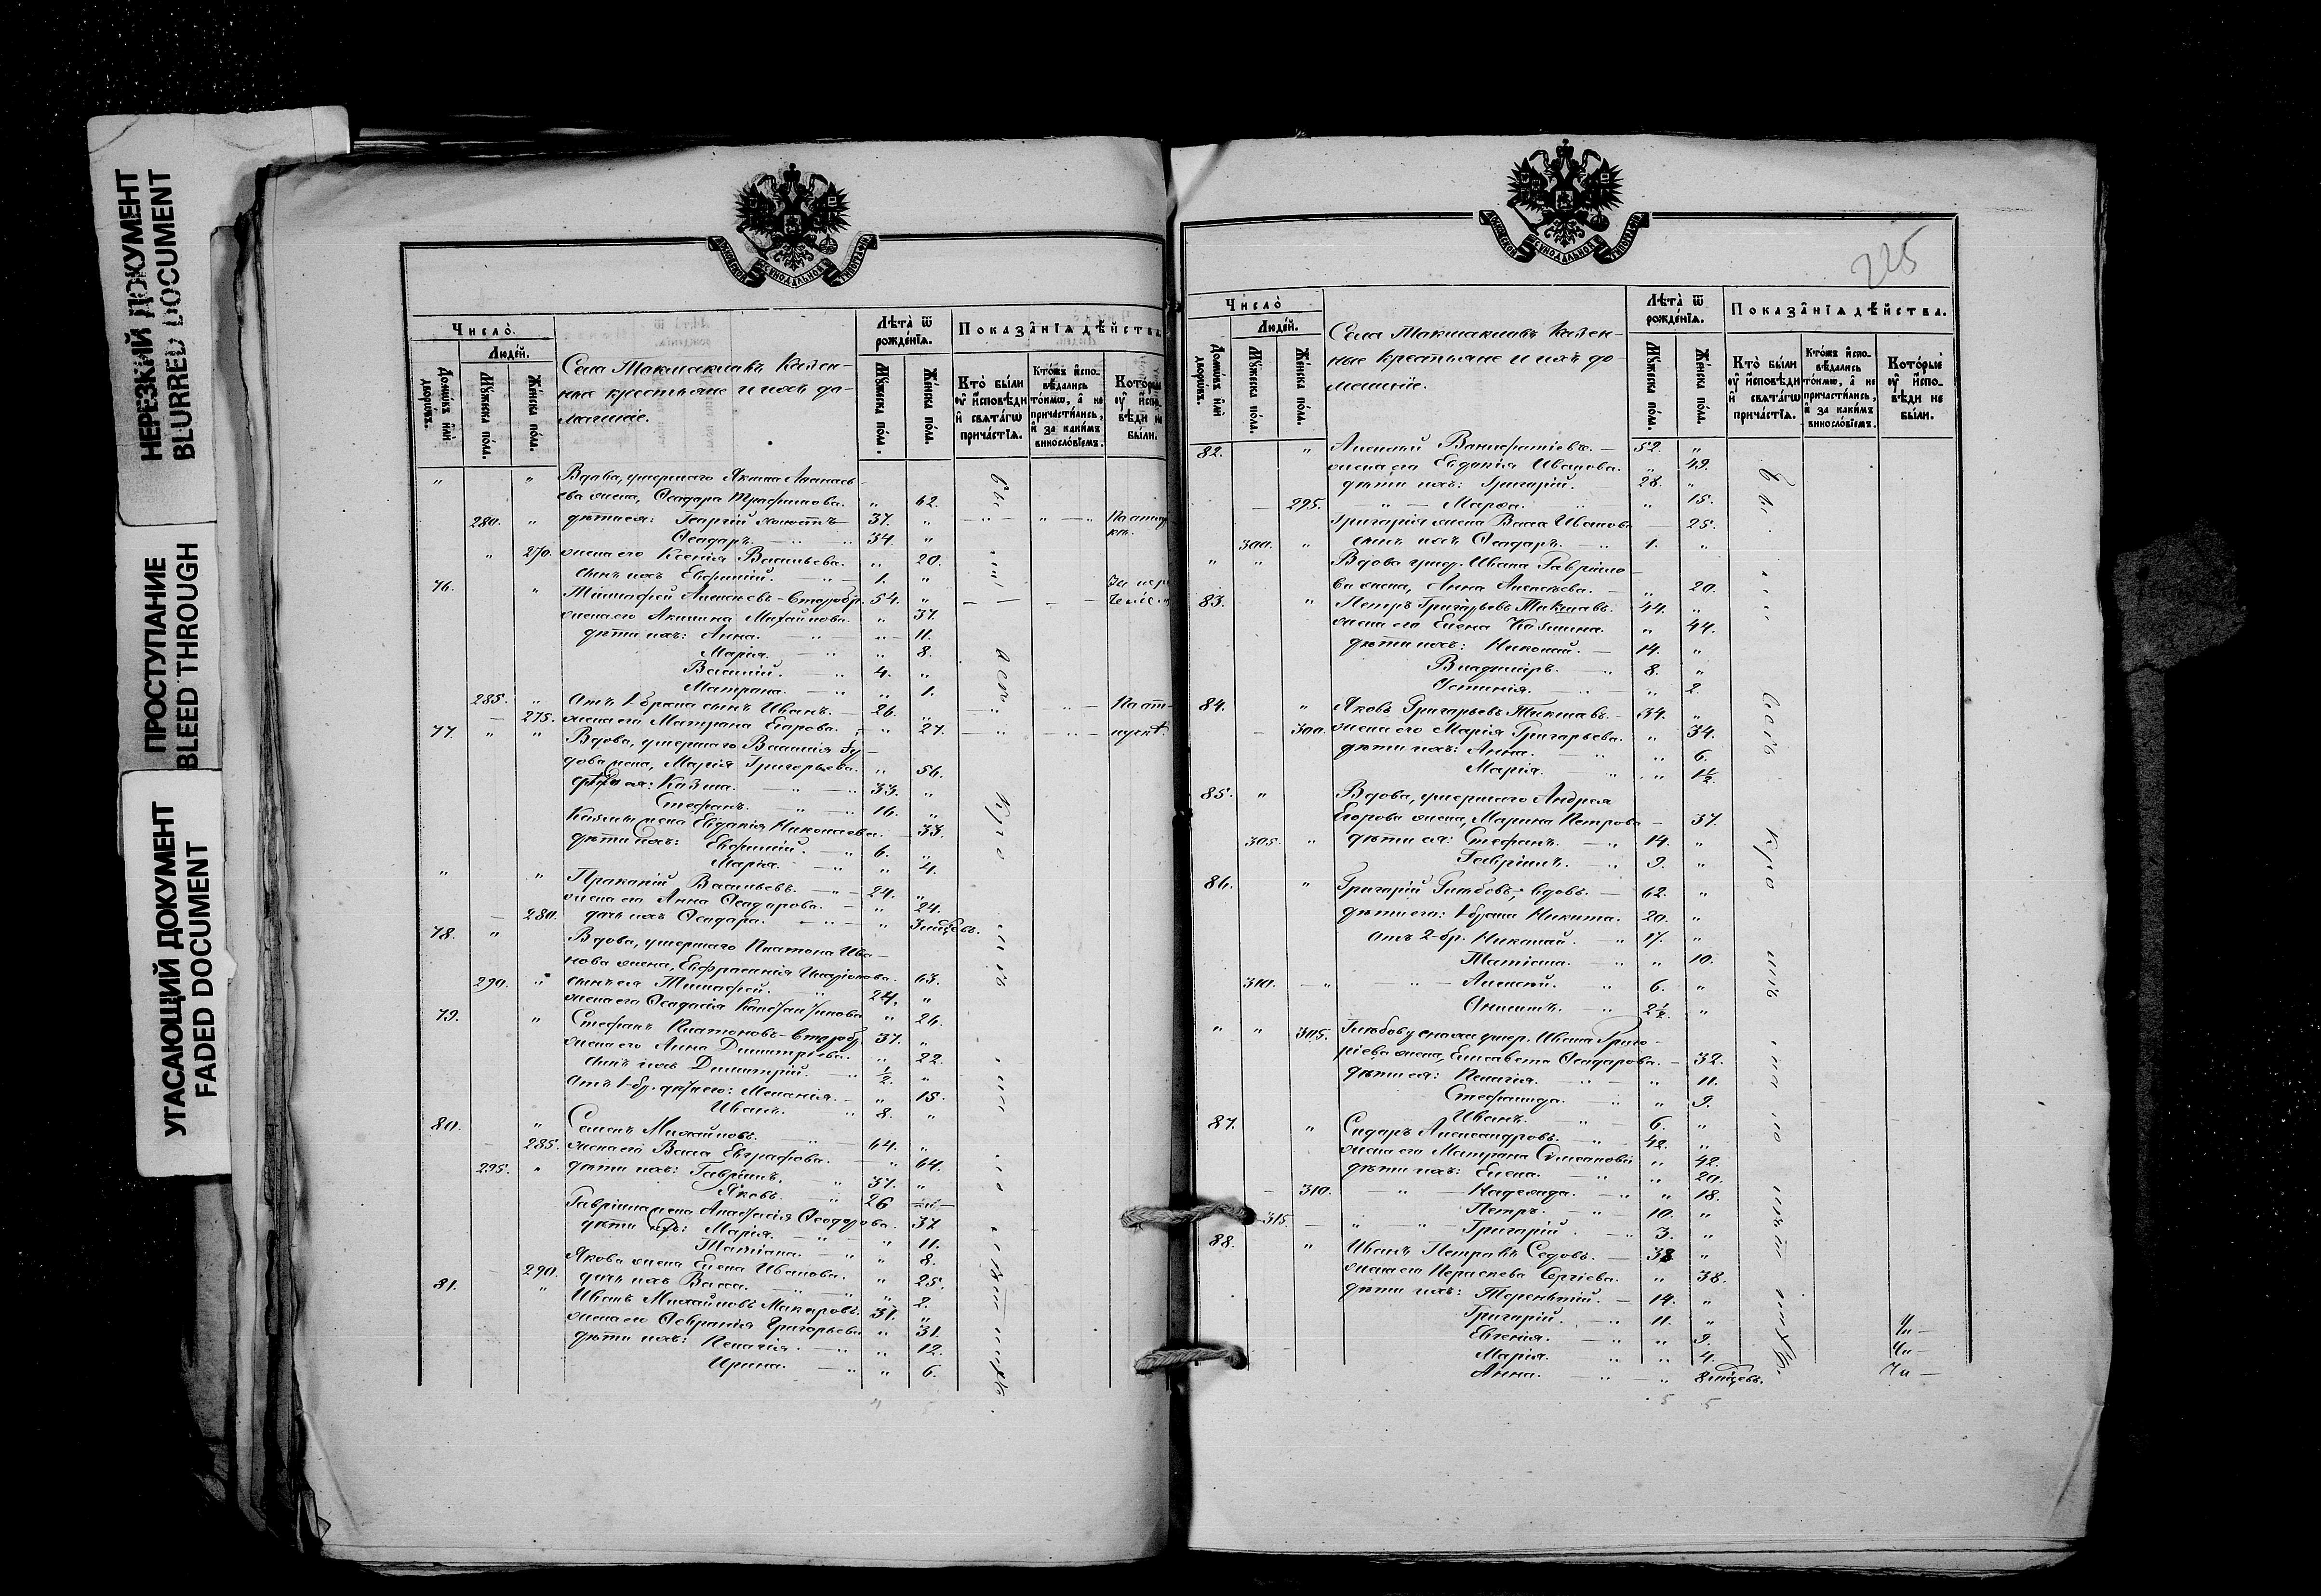 НЕРЕЗКИЙ ДОКУМЕНТ
BLURRED DOCUMENT
ПРОСТУПАНИЕ
BLEED THROUGH
УГАСАЮЩИЙ ДОКУМЕНТ
FADED DOCUMENT
МОСКОВСКОЙ СѴНОДАЛЬНОЙ ТИПОГРАФІИ
Число̀.
Людей.
Домѡвъ или дворѡвъ.
Мꙋжеска пола.
Женска пола.
Села Такмаклавъ Казен-
ные крестьяне и ихъ до-
машніе.
Лѣта̀ ѿ рожденїѧ.
Мꙋжеска пола.
Женска пола.
Показанїѧ дѣйства.
Кто̀ были оу исповѣди и свѧтагѡ причастїѧ.
Ктожъ исповѣдались токмѡ, а не причастились, и за какимъ винословїемъ.
Которые оу исповѣди не были.
" " Вдова, умершаго Якима
ева жена, Ѳеодора Трофимова. " 62.
280. " дѣти ея: Георгій холостъ 37. "
Ѳеодоръ. 34. "
" 270. жена его Ксенія Васильева. " 20.
сынъ ихъ Евфимій. 1. "
76. " Тимофей Алексѣевъ - второбр. 54. "
жена его Акилина Михайлова. " 37.
дѣти ихъ: Анна. " 11.
Марія. " 8.
Василій. 4. "
Матрона. " 1.
285. " Отъ 1-брака сынъ Иванъ. 26. "
275. жена его Матрона Егорова. " 27.
77. " " Вдова, умершаго Василія
дова жена, Марія Григорьева. " 56.
дѣти ея: Козма. 33. "
Стефанъ. 16. "
Козмы жена Евдокія Николаева. 33.
дѣти ихъ: Евфимій. 6. "
Марія. " 4.
" " Прокопій Васильевъ. 24. "
жена его Анна Ѳеодорова. " 24.
280. дочь ихъ Ѳеодора. " 3 мѣсяцевъ.
78. " Вдова, умершаго Платона Ива-
нова жена, Евфросинія Иларіонова. 63.
290. " сынъ ея Тимофей. 24. "
жена его Ѳеодосія Констант̾инова " 26.
79. " Стефанъ Платоновъ - второбр. 37. "
жена его Анна Димитріева. " 22.
сынъ ихъ Димитрій. 1/2. "
Отъ 1-бр. дѣти его: Меланія. " 15.
Иванъ. 8. "
80. " Семенъ Михайловъ. 64. "
285. жена его Васса Евграфова. " 64.
295. " дѣти ихъ: Гавріилъ. 37. "
Яковъ. 26
Гавріила жена Анастасія Ѳеодорова. 37
дѣти ихъ: Марія. " 11.
Татіана. " 8.
Якова жена Елена Иванова. " 25.
290. дочь ихъ Васса. " 2.
81. " Иванъ Михайловъ Макаровъ. 31. "
жена его Ѳевронія Григорьева " 31.
дѣти ихъ: Пелагія. " 12.
Ирина. " 6.
225
Число̀
Людей.
Домѡвъ или дворѡвъ.
Мꙋжеска пола.
Женска пола.
Села Такмаклавъ Казен-
ные крестьяне и ихъ до-
машніе.
Лѣта̀ ѿ рожденїѧ.
Мꙋжеска пола.
Женска пола.
Показанїѧ дѣйства.
Кто̀ были оу исповѣди и свѧтагѡ причастїѧ.
Ктожъ исповѣдались токмѡ, а не причастились, и за какимъ винословїемъ.
Которые оу исповѣди не были.
82. " Алексѣй Вонифатіевъ. 52. "
жена его Евдокія Иванова. " 49.
дѣти ихъ: Григорій. 28. "
295. Марѳа. " 15.
Григорія жена Васса Иванова 25.
300. " сынъ ихъ Ѳеодоръ. 1. "
" " Вдова умер. Ивана Гаврило-
ва жена, Анна Алексѣева. " 20.
83. " Петръ Григорьевъ 44. "
жена его Елена Козмина. " 44.
дѣти ихъ: Николай. 14. "
Владиміръ. 8. "
Устинія. " 2.
84. " Яковъ Григорьевъ 34. "
300. жена его Марія Григорьева. " 34.
дѣти ихъ: Анна. " 6.
Марія. " 1 1/2.
85. " Вдова, умершаго Андрея
Егорова жена, Марина Петрова 37.
305. " дѣти ея: Стефанъ. 14. "
Гавріилъ. 9. "
86. " Григорій Глѣбовъ, вдовъ. 62. "
дѣти его: 1-брака Никита. 20. "
Отъ 2-бр. Николай. 17. "
Татіана. " 10.
310. Алексѣй. 6. "
Онисимъ. 2 1/2. "
" " 305. умер. Ивана Григо-
ріева жена, Елисавета Ѳеодорова. 32.
дѣти ея: Пелагія. " 11.
Стефанида. " 9.
Иванъ. 6. "
87. " Сидоръ Александровъ. 42. "
жена его Матрона Симеонова " 42.
дѣти ихъ: Елена. " 20.
310. Надежда. " 18.
Петръ. 10. "
315. Григорій. 3. "
88. " Иванъ Петровъ Седовъ. 38 "
жена его Параскева Сергіева. " 38.
дѣти ихъ: Терентій. 14. "
Григорій. 11. "
Евгенія. " 9.
Марія. " 4.
Анна. " 8 мѣсяцевъ.